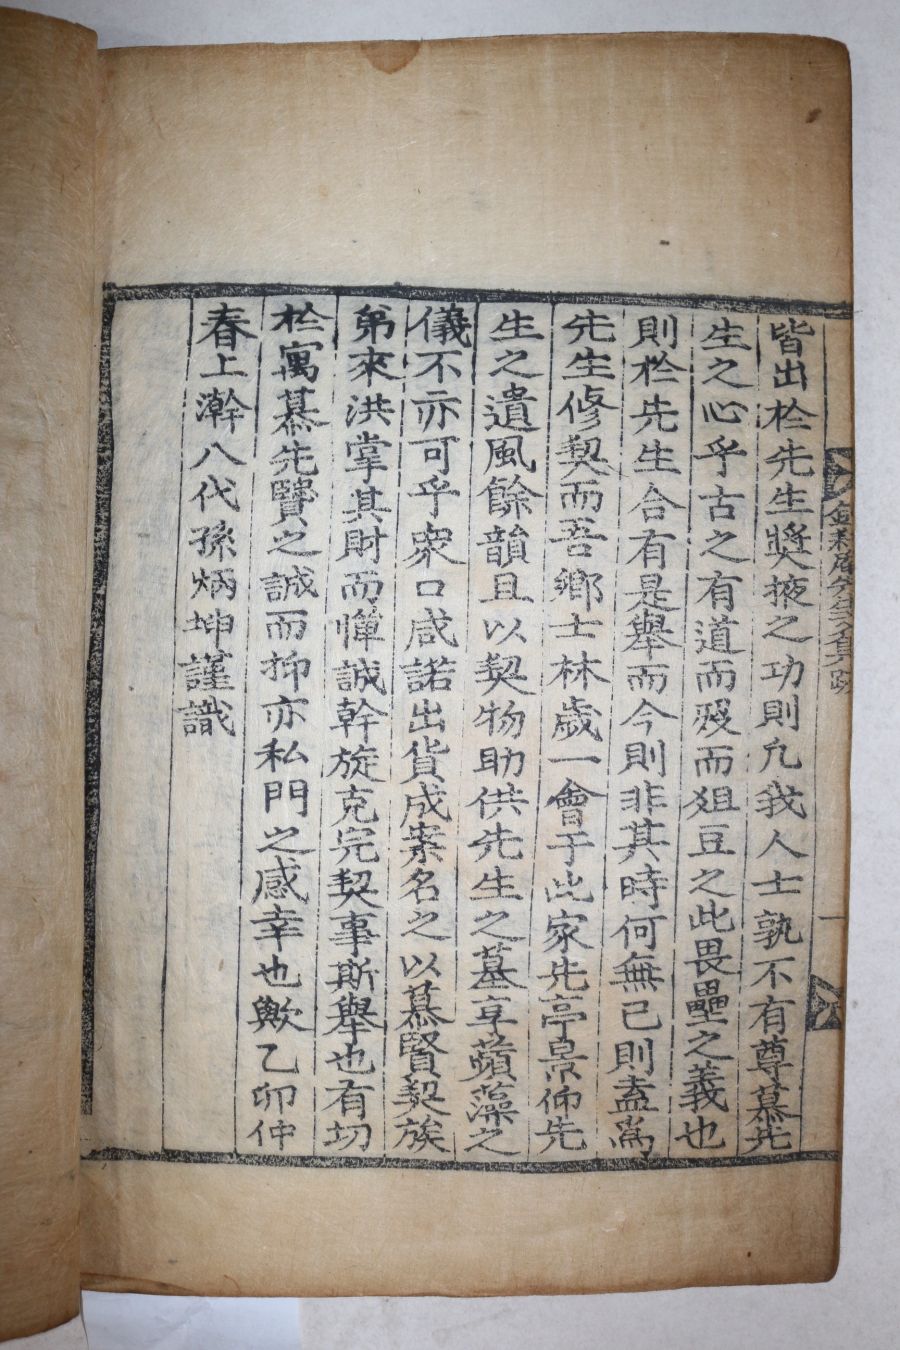 皆出於先生奬掖之功則凡我人士孰不有尊慕先
生之心乎古之有道而歿而俎豆之此畏壘之義也
則於先生合有是舉而今則非其時何無已則盍爲
先生修契而吾鄉士林歲一會于此家先亭景仰先
生之遺風餘韻且以契物助供先生之墓享蘋藻之
儀不亦可乎衆口咸諾出貨成案名之以慕賢契族
弟來洪掌其財而憚誠幹旋克完契事斯舉也有切
於寓慕先賢之誠而抑亦私門之感幸也歟乙卯仲
春上澣八代孫炳坤謹識